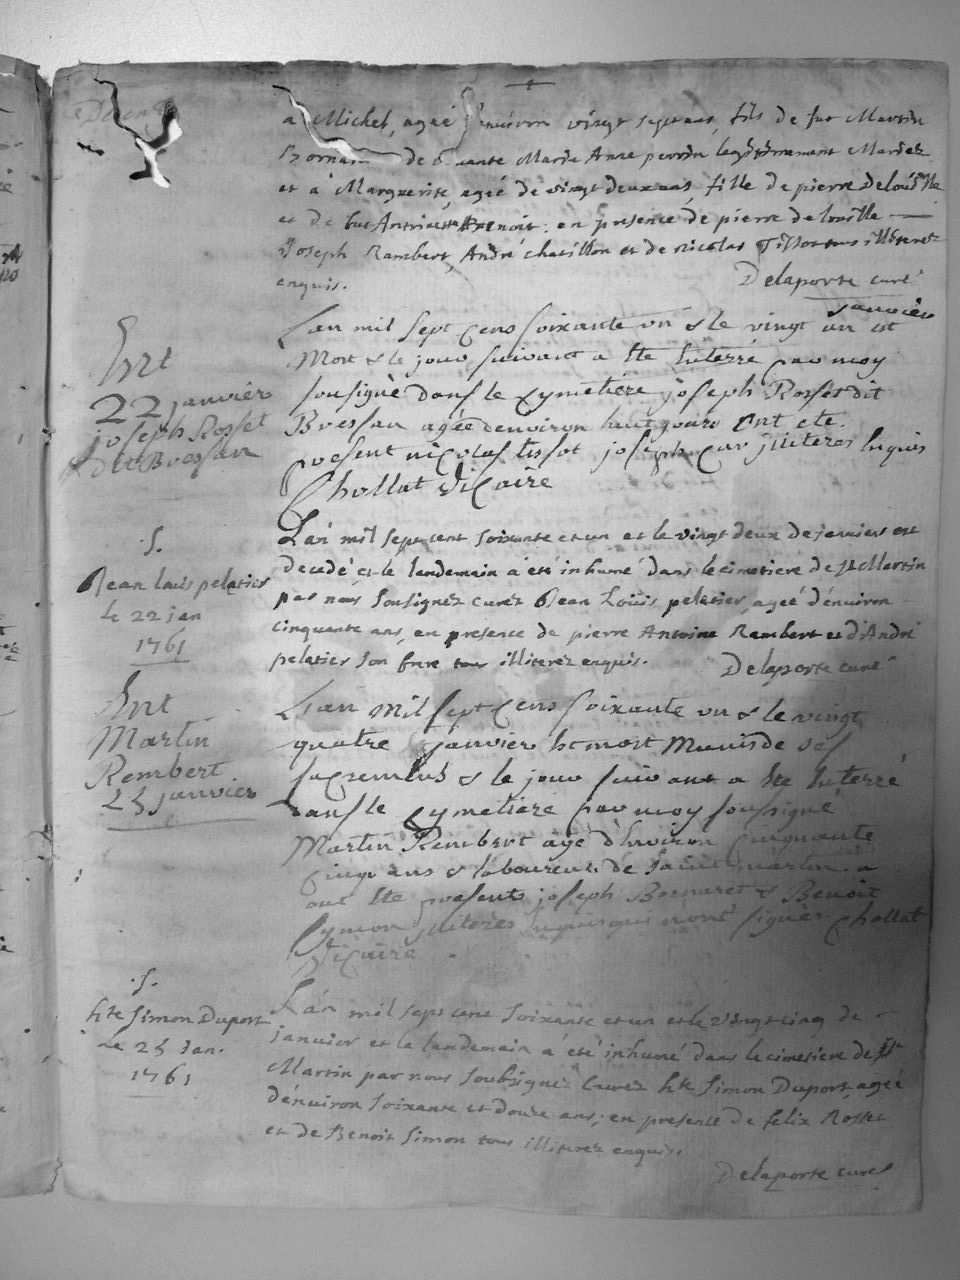 a Michel, ageé d'enuiron vingt sept ans, fils de fut Martin
de viuante Marie Anne perrin legitimement Mariez
et a Marguerite, ageé de vingt deux ans, fille de pierre Delouille
et de fut Benoit; en presence de pierre delouille
Joseph Rambert, André chatillon et de nicolas Tissot tous illiterez
enquis. Delaporte curé
janvier
Lan mil sept cens soixante un & le vingt un est
Mort & le jour suivant a ete Enterré par moy
sousigné dans le cymetiére joseph Rosset dit
Bressan agée denviron huit jours ont ete
present nicolas tissot joseph illiteres Enquis
Chollat Vicaire
Ent
22 janvier
joseph Rosset
dit Bressan
S.
Jean Louis peletier
le 22 jan
1761
L'an mil sept cent soixante et un et le vingt deux de janvier est
decedé et le landemain a été inhumé dans le cimetiere de St Martin
par nous Soussignez curez Jean Loüis peletier, ageé d'enuiron
cinquante ans, en presence de pierre Antoine Rambert et d'André
peletier son frere tous illiterez enquis. Delaporte curé
Ent
Martin
Rembert
25 janvier
L'an Mil sept cens soixante un & le vingt
quatre janvier est mort Munis de ses
sacremens & le jour suivant a ete Enterré
dans le cymetiere par moy soussigné
Martin Rembert agé d'Environ cinquante
cinq ans & laboureur de saint Martin. a
ont ete presents joseph & Benoit
Symon illiteres Enquis qui n'ont signés Chollat
Vicaire
S.
hte Simon Duport
le 25 Jan.
1761
L'an mil sept cent soixante et un et le vingt cinq de
janvier et le landemain a été inhumé dans le cimetiere de St
Martin par nous soubsignez Curez hte Simon Duport, ageé
d'enuiron soixante et douze ans; en presence de felix Rosset
et de Benoit Simon tous illiterez enquis.
Delaporte curé